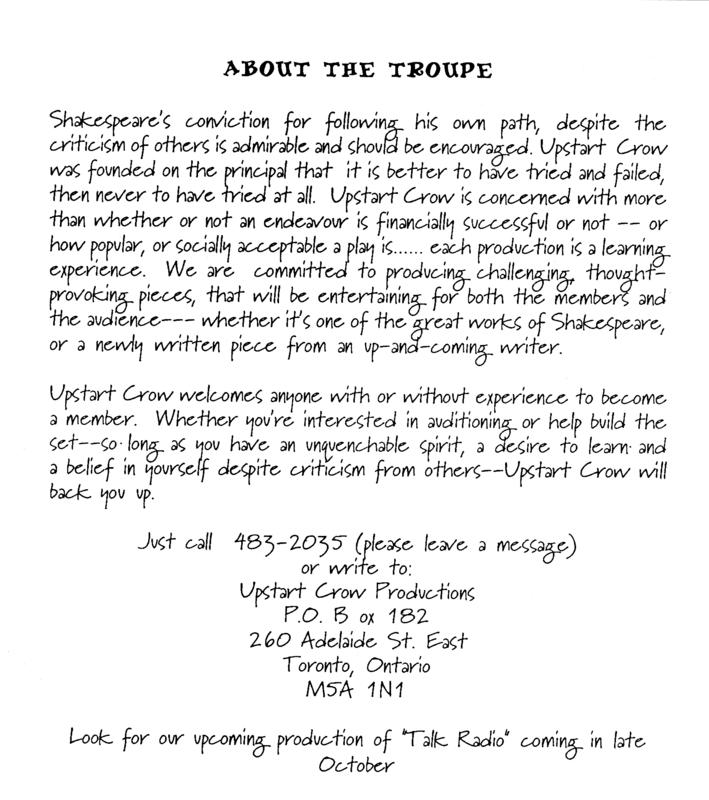 ABOUT THE TROUPE
Shakespeare's conviction for following his own path, despite the
criticism of others is admirable and should be encouraged. Upstart Crow
was founded on the principal that it is better to have tried and failed,
then never to have tried at all. Upstart Crow is concerned with more
than whether or not an endeavour is financially successful or not -- or
how popular, or socially acceptable a play is...... each production is a learning
experience. We are committed to producing challenging, thought-
provoking pieces, that will be entertaining for both the members and
the audience--- whether it's one of the great works of Shakespeare,
or a newly written piece from an up-and-coming writer.
Upstart Crow welcomes anyone with or without experience to become
a member. Whether you're interested in auditioning or help build the
set--so long as you have an unquenchable spirit, a desire to learn and
a belief in yourself despite criticism from others--Upstart Crow will
back you up.
Just call 483-2035 (please leave a message)
or write to:
Upstart Crow Productions
P.O. B ox 182
260 Adelaide St. East
Toronto, Ontario
M5A 1N1
Look for our upcoming production of "Talk Radio" coming in late
October